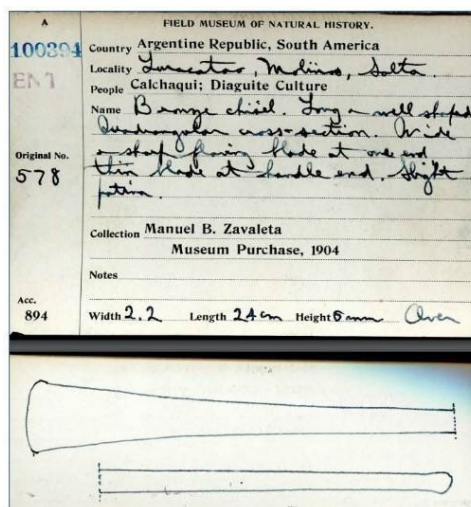 A
FIELD MUSEUM OF NATURAL HISTORY.
100394
Country Argentine Republic, South America
Locality Luracatao, Molinos, Salta.
People Calchaqui; Diaguite Culture
Name Bronze chisel. Long & well shaped
Quadrangular cross-section. Wide
& sharp flaring blade at one end
thin blade at handle end. Slight
patina.
Original No.
578
Collection Manuel B. Zavaleta
Museum Purchase, 1904
Notes
Acc.
894
Width 2.2 Length 24cm Height 6mm Over